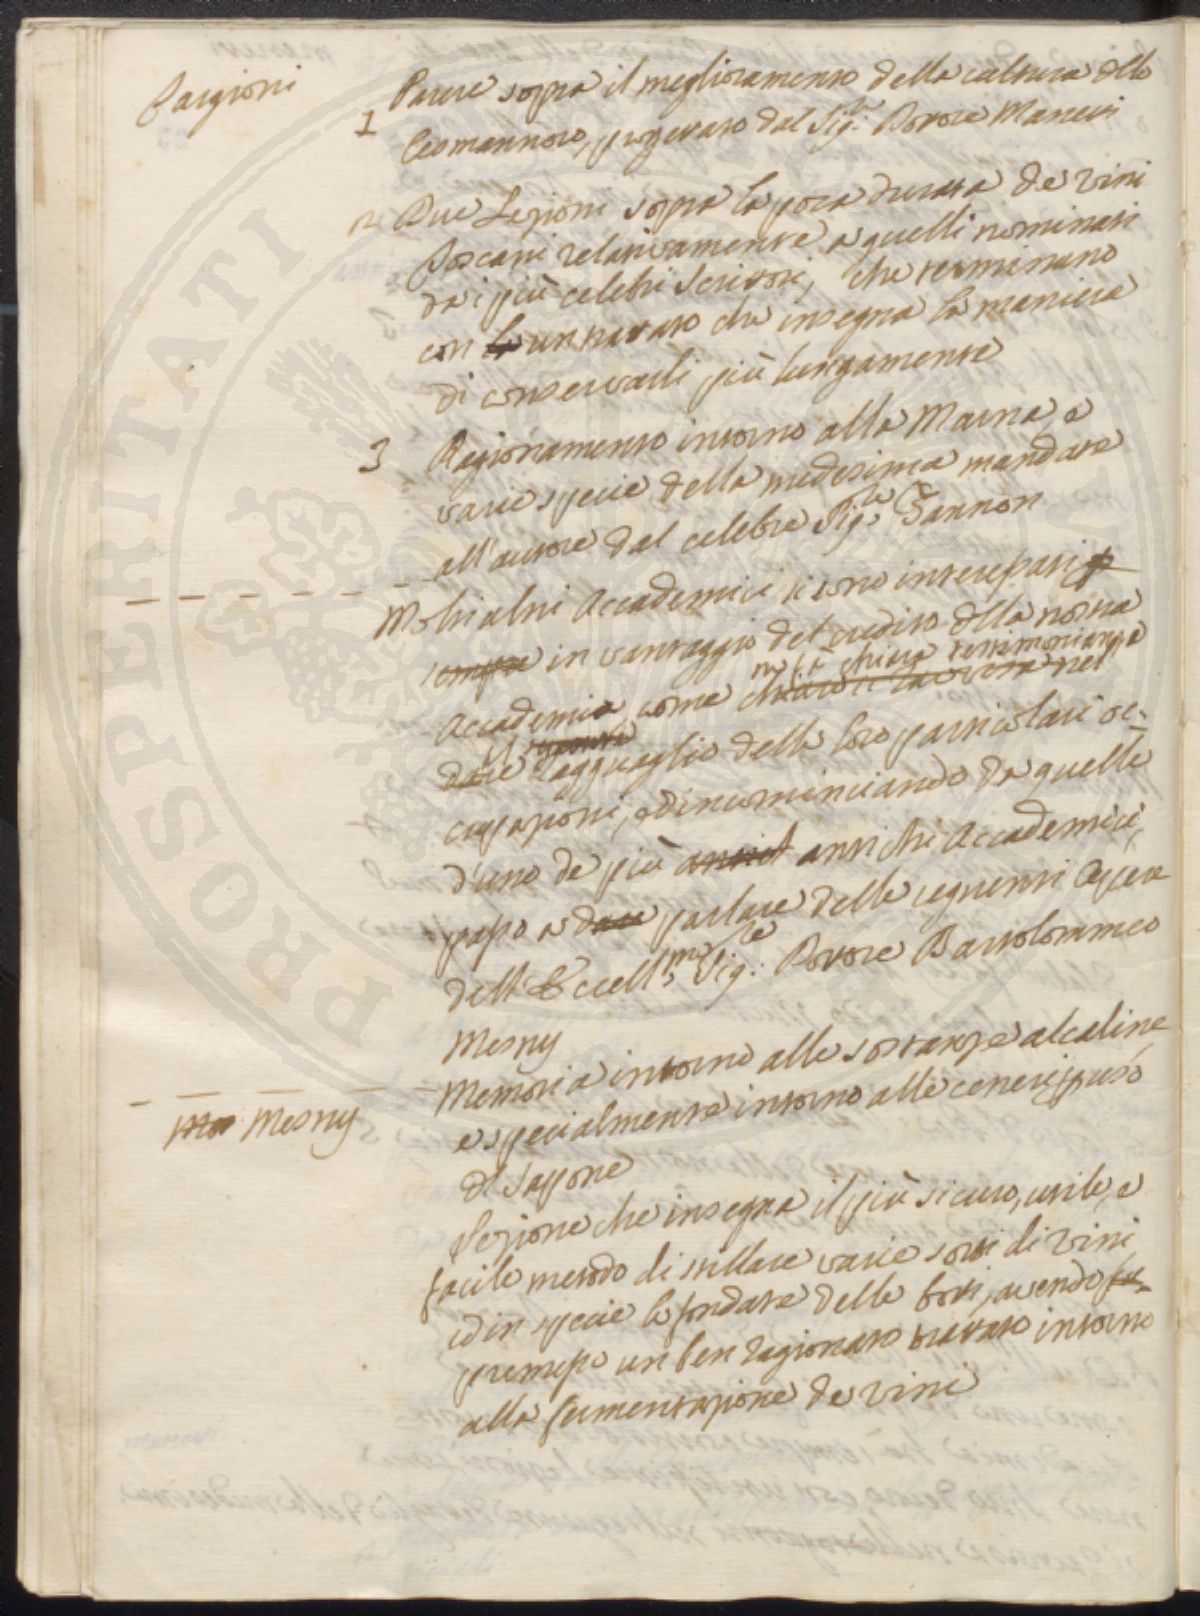 Targioni
1 Parere sopra il miglioramento della cultura dello
Cosmannoro, progettato dal Sig.re Dottore Manetti
2 Due Lezioni sopra la poca durata de vini
Toscani relativamente a quelli nominati
da i più celebri Scrittori, che terminano
con la un trattato che insegna la maniera
di conservarli più lungamente
3 Ragionamento intorno alla Marna, e
varie specie della medesima mandate
all'autore dal celebre Sig.re Zannon
Molti altri Accademici si sono interessati p
sempre in vantaggio del credito della nostra
Accademia come chiaro si ravvisa nel
ne fa chiara testimonianza
dare ragguaglio delle loro particolari oc-
il
cupazioni, ed incominciando da quelle
d'uno de più antich antichi Accademici,
passo a dare parlare delle seguenti Opere
dell'Eccell.mo Sig.re Dottore Bartolommeo
Mesny
Mesny
Memoria intorno alle sostanze alcaline
e specialmente intorno alle ceneri p uso
di Sapone
Lezione che insegna il più sicuro, utile, e
facile metodo di stillare varie sorti di vini
id in specie le fondate delle botti, avendo
premesso un ben ragionato trattato intorno
alla fermentazione de vini
PROSPERITATI